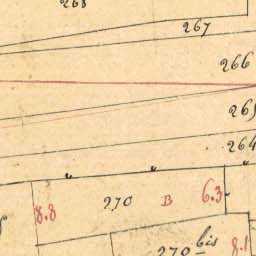 268
267
266
265
264
270 B 6.3
8.8
270 bis 8.1